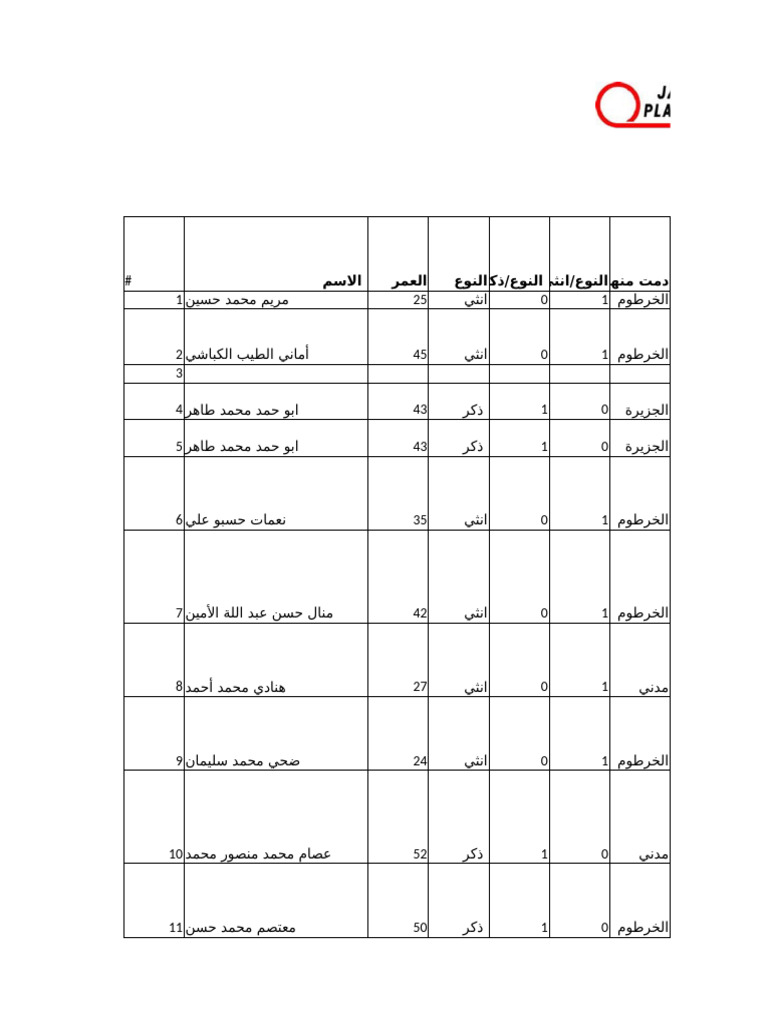 JA
PLA
# الاسم العمر النوع النوع/ذك النوع/انثى دمت منه
1 مريم محمد حسين 25 انثي 0 1 الخرطوم
2 أماني الطيب الكباشي 45 انثي 0 1 الخرطوم
3
4 ابو حمد محمد طاهر 43 ذكر 1 0 الجزيرة
5 ابو حمد محمد طاهر 43 ذكر 1 0 الجزيرة
6 نعمات حسبو علي 35 انثي 0 1 الخرطوم
7 منال حسن عبد اللة الأمين 42 انثي 0 1 الخرطوم
8 هنادي محمد أحمد 27 انثي 0 1 مدني
9 ضحي محمد سليمان 24 انثي 0 1 الخرطوم
10 عصام محمد منصور محمد 52 ذكر 1 0 مدني
11 معتصم محمد حسن 50 ذكر 1 0 الخرطوم